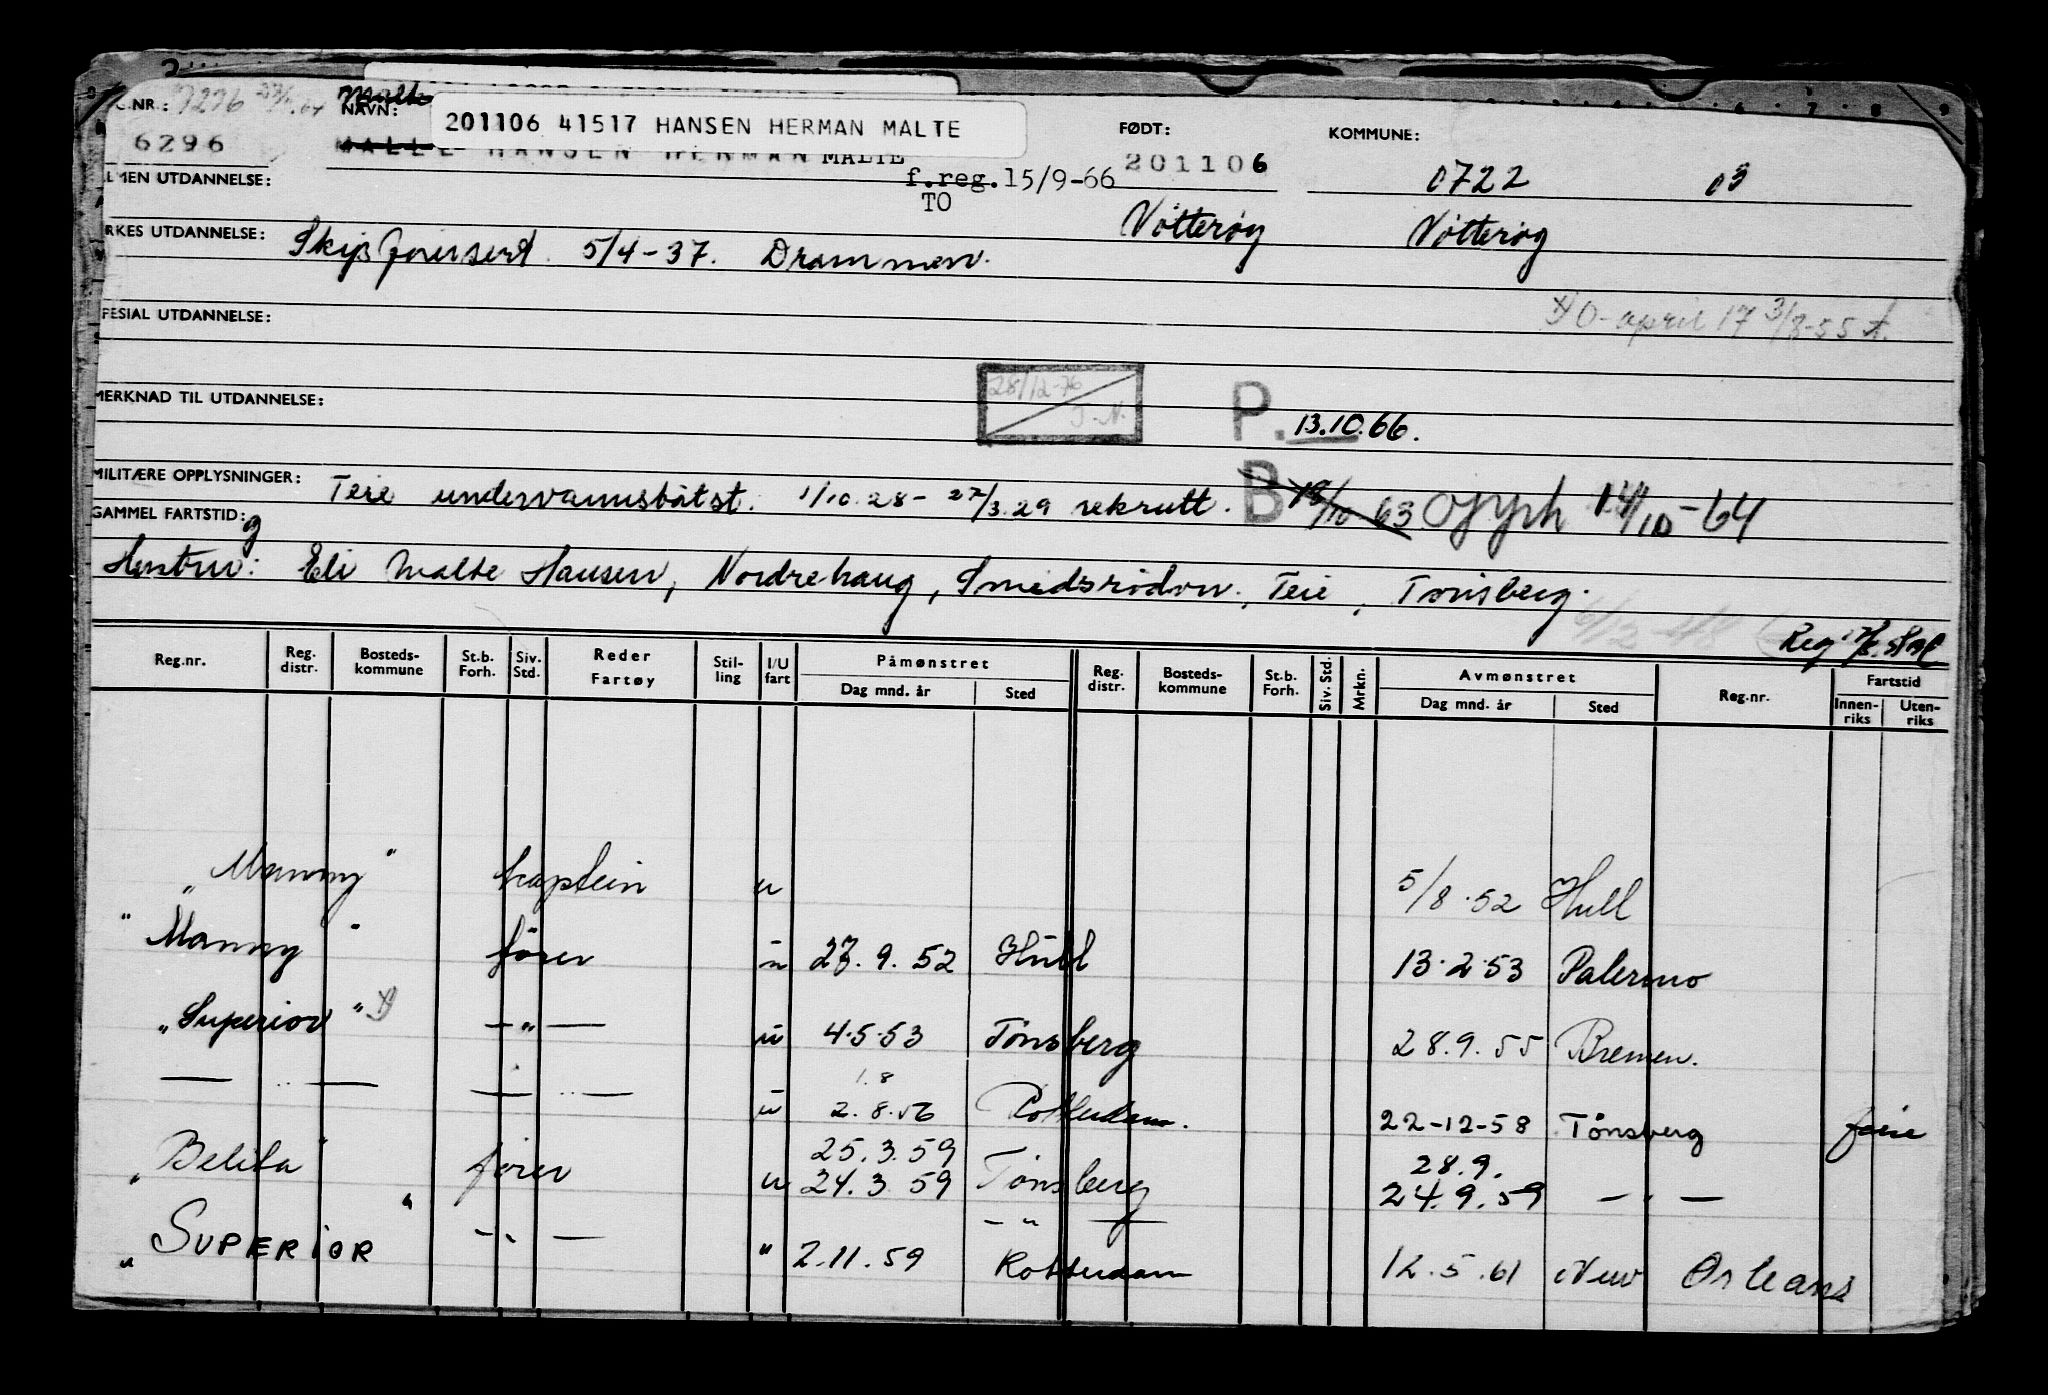 C.NR.: 7276
6296
NAVN: Malte
201106 41517 HANSEN HERMAN MALTE
HANSEN HERMAN MALTE
f.reg. 15/9-66
TO
FØDT:
201106
Nøtterøy
KOMMUNE:
0722 03
Nøtterøy
LMEN UTDANNELSE:
RKES UTDANNELSE: Skipsførersert. 5/4-37. Drammen.
0-april 17 3/8-55
PESIAL UTDANNELSE:
MERKNAD TIL UTDANNELSE:
28/12-76
J-N.
P. 13.10.66.
MILITÆRE OPPLYSNINGER: Teie undervannsbåtst. 1/10.28-27/3.29 rekrutt.
B 19/10-63 opph 14/10-64
GAMMEL FARTSTID:
Hustru: Eli Malte Hansen, Nordrehaug, Smedsrødvn., Teie, Tønsberg.
Reg.nr. Reg. distr. Bosteds-kommune St.b. Forh. Siv. Std. Reder Fartøy Stil-ling I/U fart Påmønstret Dag mnd. år Sted Reg. distr. Bosteds-kommune St.b. Forh. Siv. Std. Mrkn. Avmønstret Dag mnd. år Sted Reg.nr. Fartstid Innen-riks Uten-riks
"Manny" kaptein u 5/8.52 Hull
"Manny" fører u 27.9.52 Hull 13.2.53 Palermo
"Superior" —"— u 4.5.53 Tønsberg 28.9.55 Bremen.
1.8
— " — — " — u 2.8.56 Rotterdam. 22-12-58 Tønsberg ferie
25.3.59 28.9.
"Belita" fører u 24.3.59 Tønsberg 24.9.59 — " —
— " —
"SUPERIOR" — " — " 2.11.59 Rotterdam 12.5.61 New Orleans